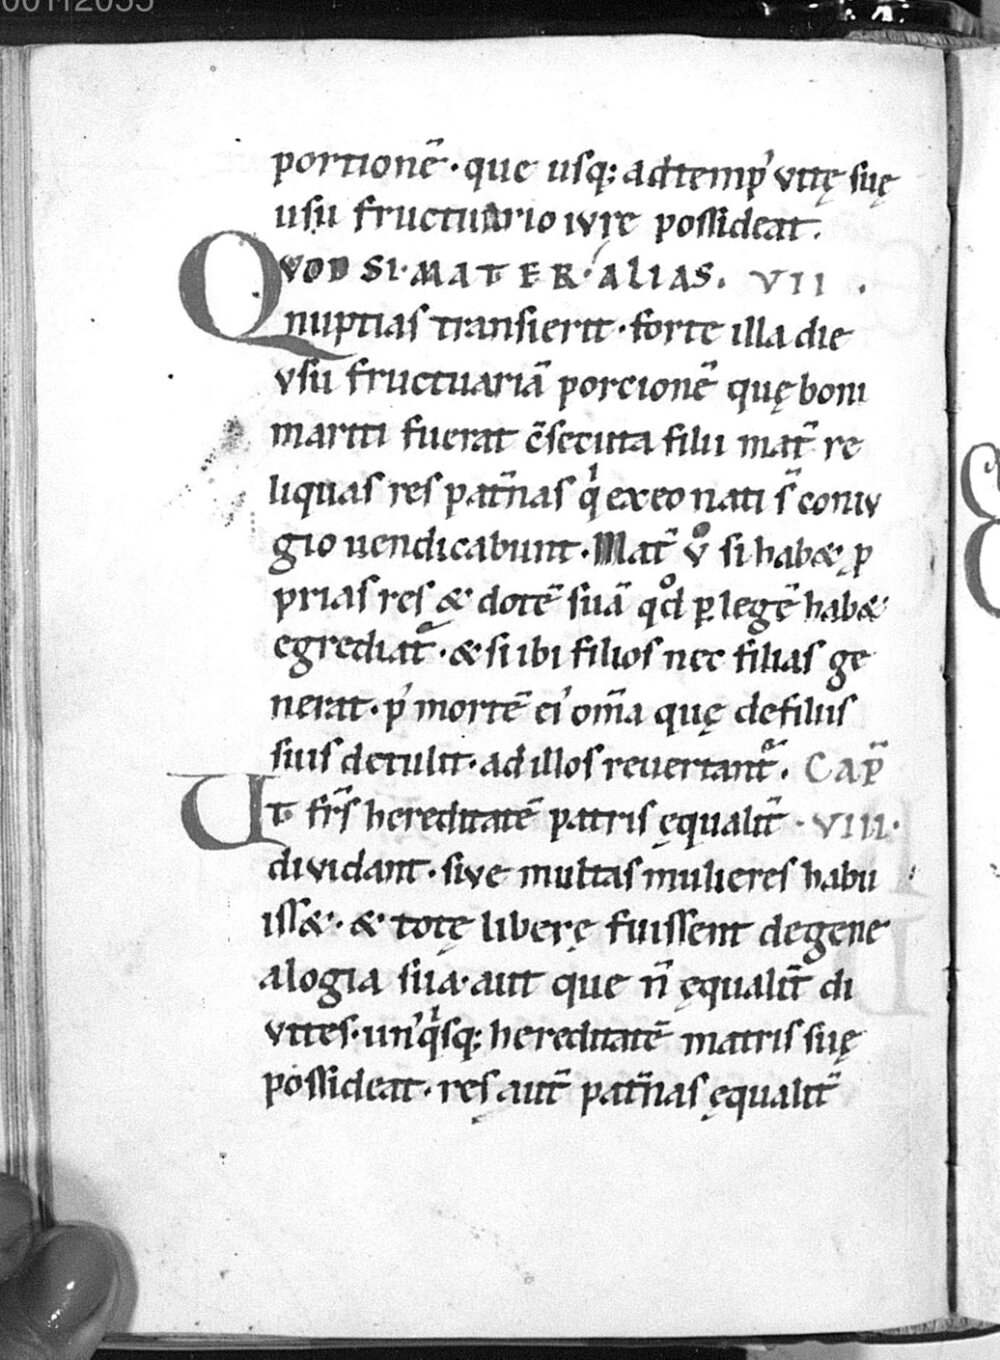 portionē · que usq; ad temp᾽ vitę suę
usu fructuario iure possideat.
QVOD SI · MATER · ALIAS. VII.
nuptias transierit · forte illa die
vsu fructuariā porcionē quę boni
mariti fuerat c̄secuta filii mat̄ re
liquas res pat̄nas qͥ ex eo nati s̄ coniu
gio uendicabunt · Mat̄ vͦ si habæ ꝓ
prias res & dotē suā qͦd ꝑ legē habæ
egrediat̄ · & si ibi filios nec filias ge
nerat · p᾽ mortē ei᾽ om̄a quę de filiis
suis detulit · ad illos reuertant̄ . CAP̄
Ut fr̄s hereditatē patris ęqualit̄ · VIII ·
dividant · sive multas mulieres habu
issæ · & totę liberę fuissent de gene
alogia sua · aut que n̄ ęqualit̄ di
vites · un᾽qͥsq; hereditatē matris suę
possideat · res aut̄ pat̄nas ęqualit̄